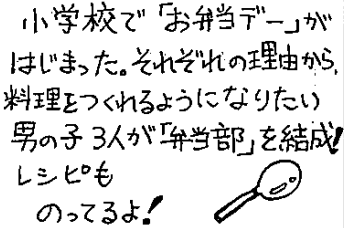 小学校で「お弁当デー」が
はじまった。それぞれの理由から、
料理をつくれるようになりたい
男の子3人が「弁当部」を結成!
レシピも
のってるよ!